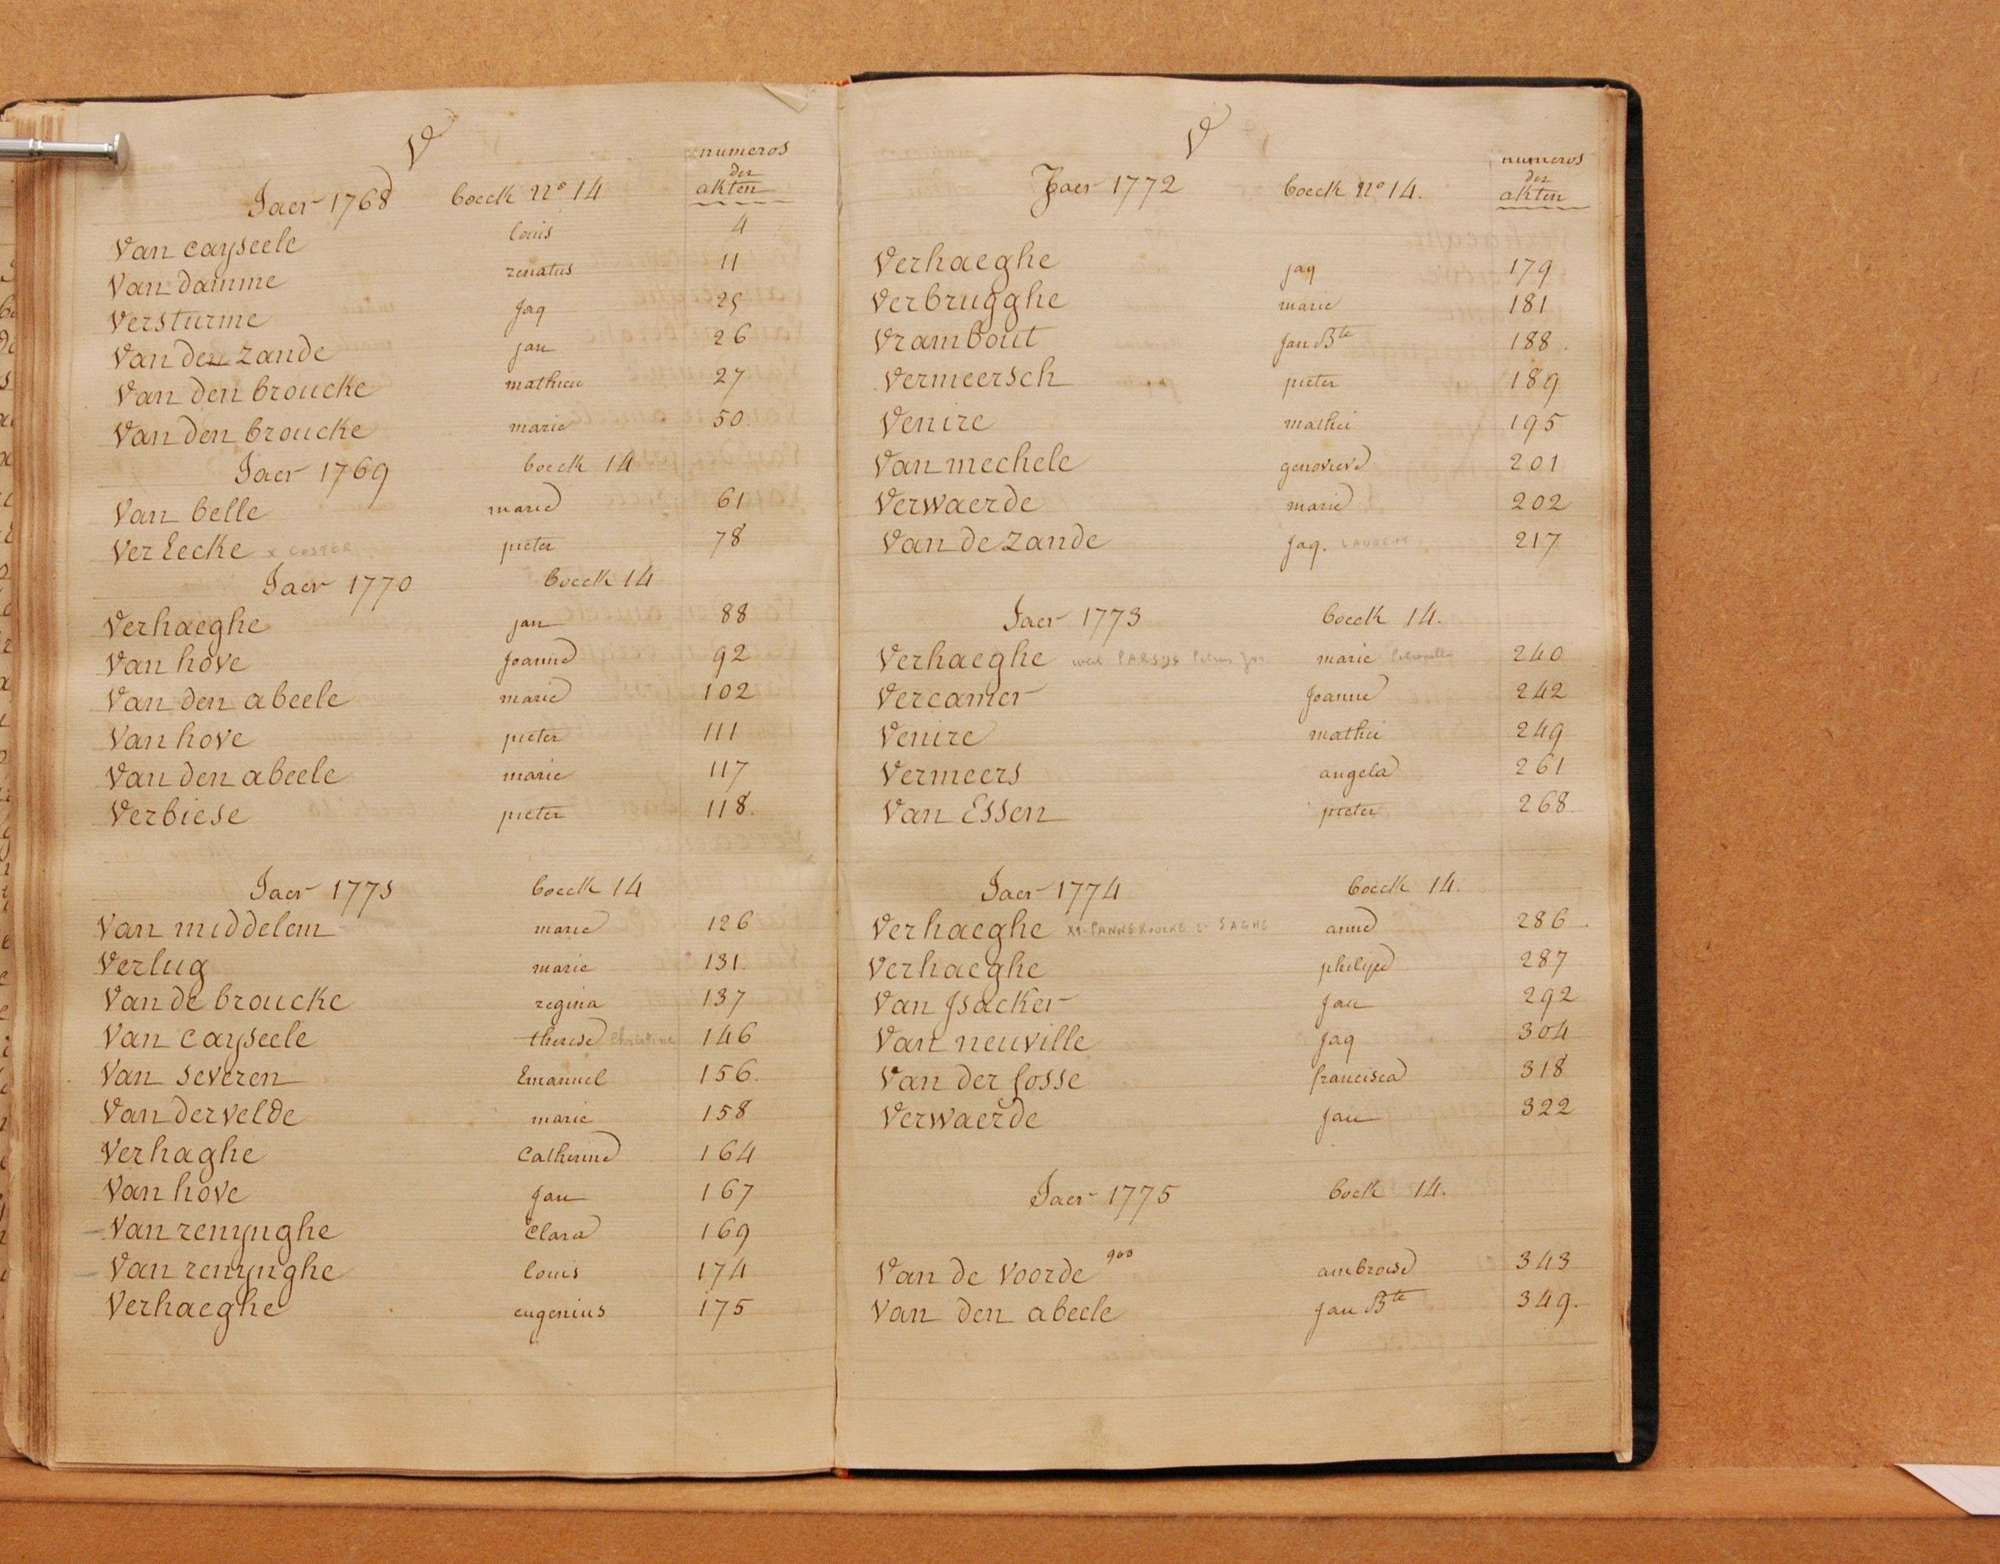 V
numeros
der
akten
Jaer 1768 boeck No 14
Van cayseele louis 4
Van damme renatus 11
Versturme Jaq 25
Van den zande jan 26
Van den broucke mathieu 27
Van den broucke marie 50
Jaer 1769 boeck 14
Van belle marie 61
Ver Eecke x COSTER pieter 78
Jaer 1770 boeck 14
Verhaeghe jan 88
Van hove Joanne 92
Van den abeele marie 102
Van hove pieter 111
Van den abeele marie 117
Verbiese pieter 118.
Jaer 1771 boeck 14
Van middelem marie 126
Verlug marie 131
Van de broucke regina 137
Van cayseele therese Christine 146
Van severen Emanuel 156.
Van der velde marie 158
Verhaghe Catherine 164
Van hove Jan 167
Van renynghe Clara 169
Van renynghe louis 174
Verhaeghe eugenius 175
V
numeros
der
akten
Jaer 1772 boeck No 14.
Verhaeghe jaq 179
Verbrugghe marie 181
Vrambout Jan Bte 188.
Vermeersch pieter 189
Venire mathei 195
Van mechele genovieve 201
Verwaerde marie 202
Van de zande Jaq. LAURENT 217
Jaer 1773 boeck 14.
Verhaeghe PARSYS Petrus marie Petronella 240
Vercamer Joanne 242
Venire mathei 249
Vermeers angela 261
Van Essen pieter 268
Jaer 1774 boeck 14.
Verhaeghe anne 286
Verhaeghe philipe 287
Van Jsacker Jan 292
Van neuville Jaq 304
Van der fosse francisca 318
Verwaerde Jan 322
Jaer 1775 boek 14.
Van de Voorde ambroise 343
Van den abeele Jan Bte 349.